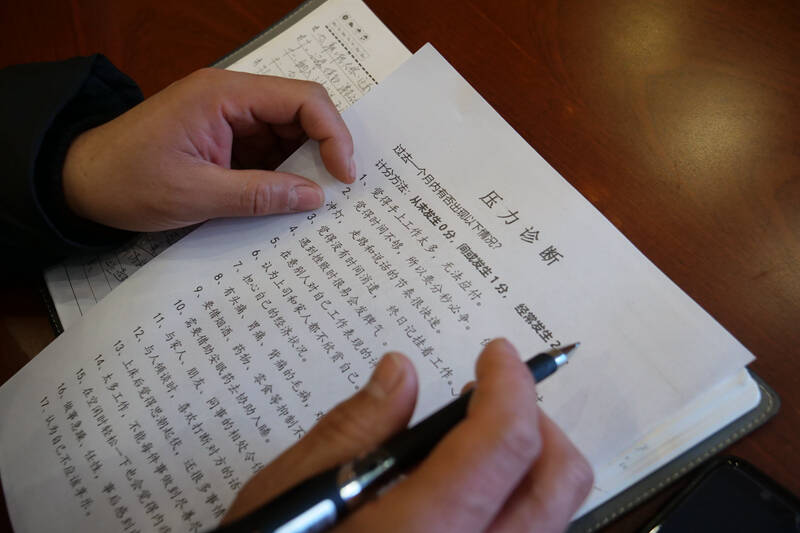 压力诊断
过去一个月内有否出现以下情况?
计分方法:从未发生0分,间或发生1分,经常发生2
1、觉得手上工作太多,无法应付。
2、觉得时间不够,所以要分秒必争。
冲灯,走路和说话的节奏很快速。
3、觉得没有时间消遣,终日记挂着工作。
4、遇到挫败时很易会发脾气。
5、在意别人对自己工作表现的
6、认为上司和家人都不欣赏自己。
7、担心自己的经济状况。
8、有头痛、胃痛、背痛的毛病,
9、要借烟酒、药物、零食等抑制不
10、需要借助安眠药去协助入睡。
11、与家人、朋友、同事的相处令
12、与人倾谈时,喜欢打断对方的话
13、上床后觉得思潮起伏,还很多事情
14、太多工作,不能每件事做到尽善尽
15、在空闲时轻松一下也会觉得内
16、做事急躁、任性,事后感到内
17、认为自己不应该享乐。